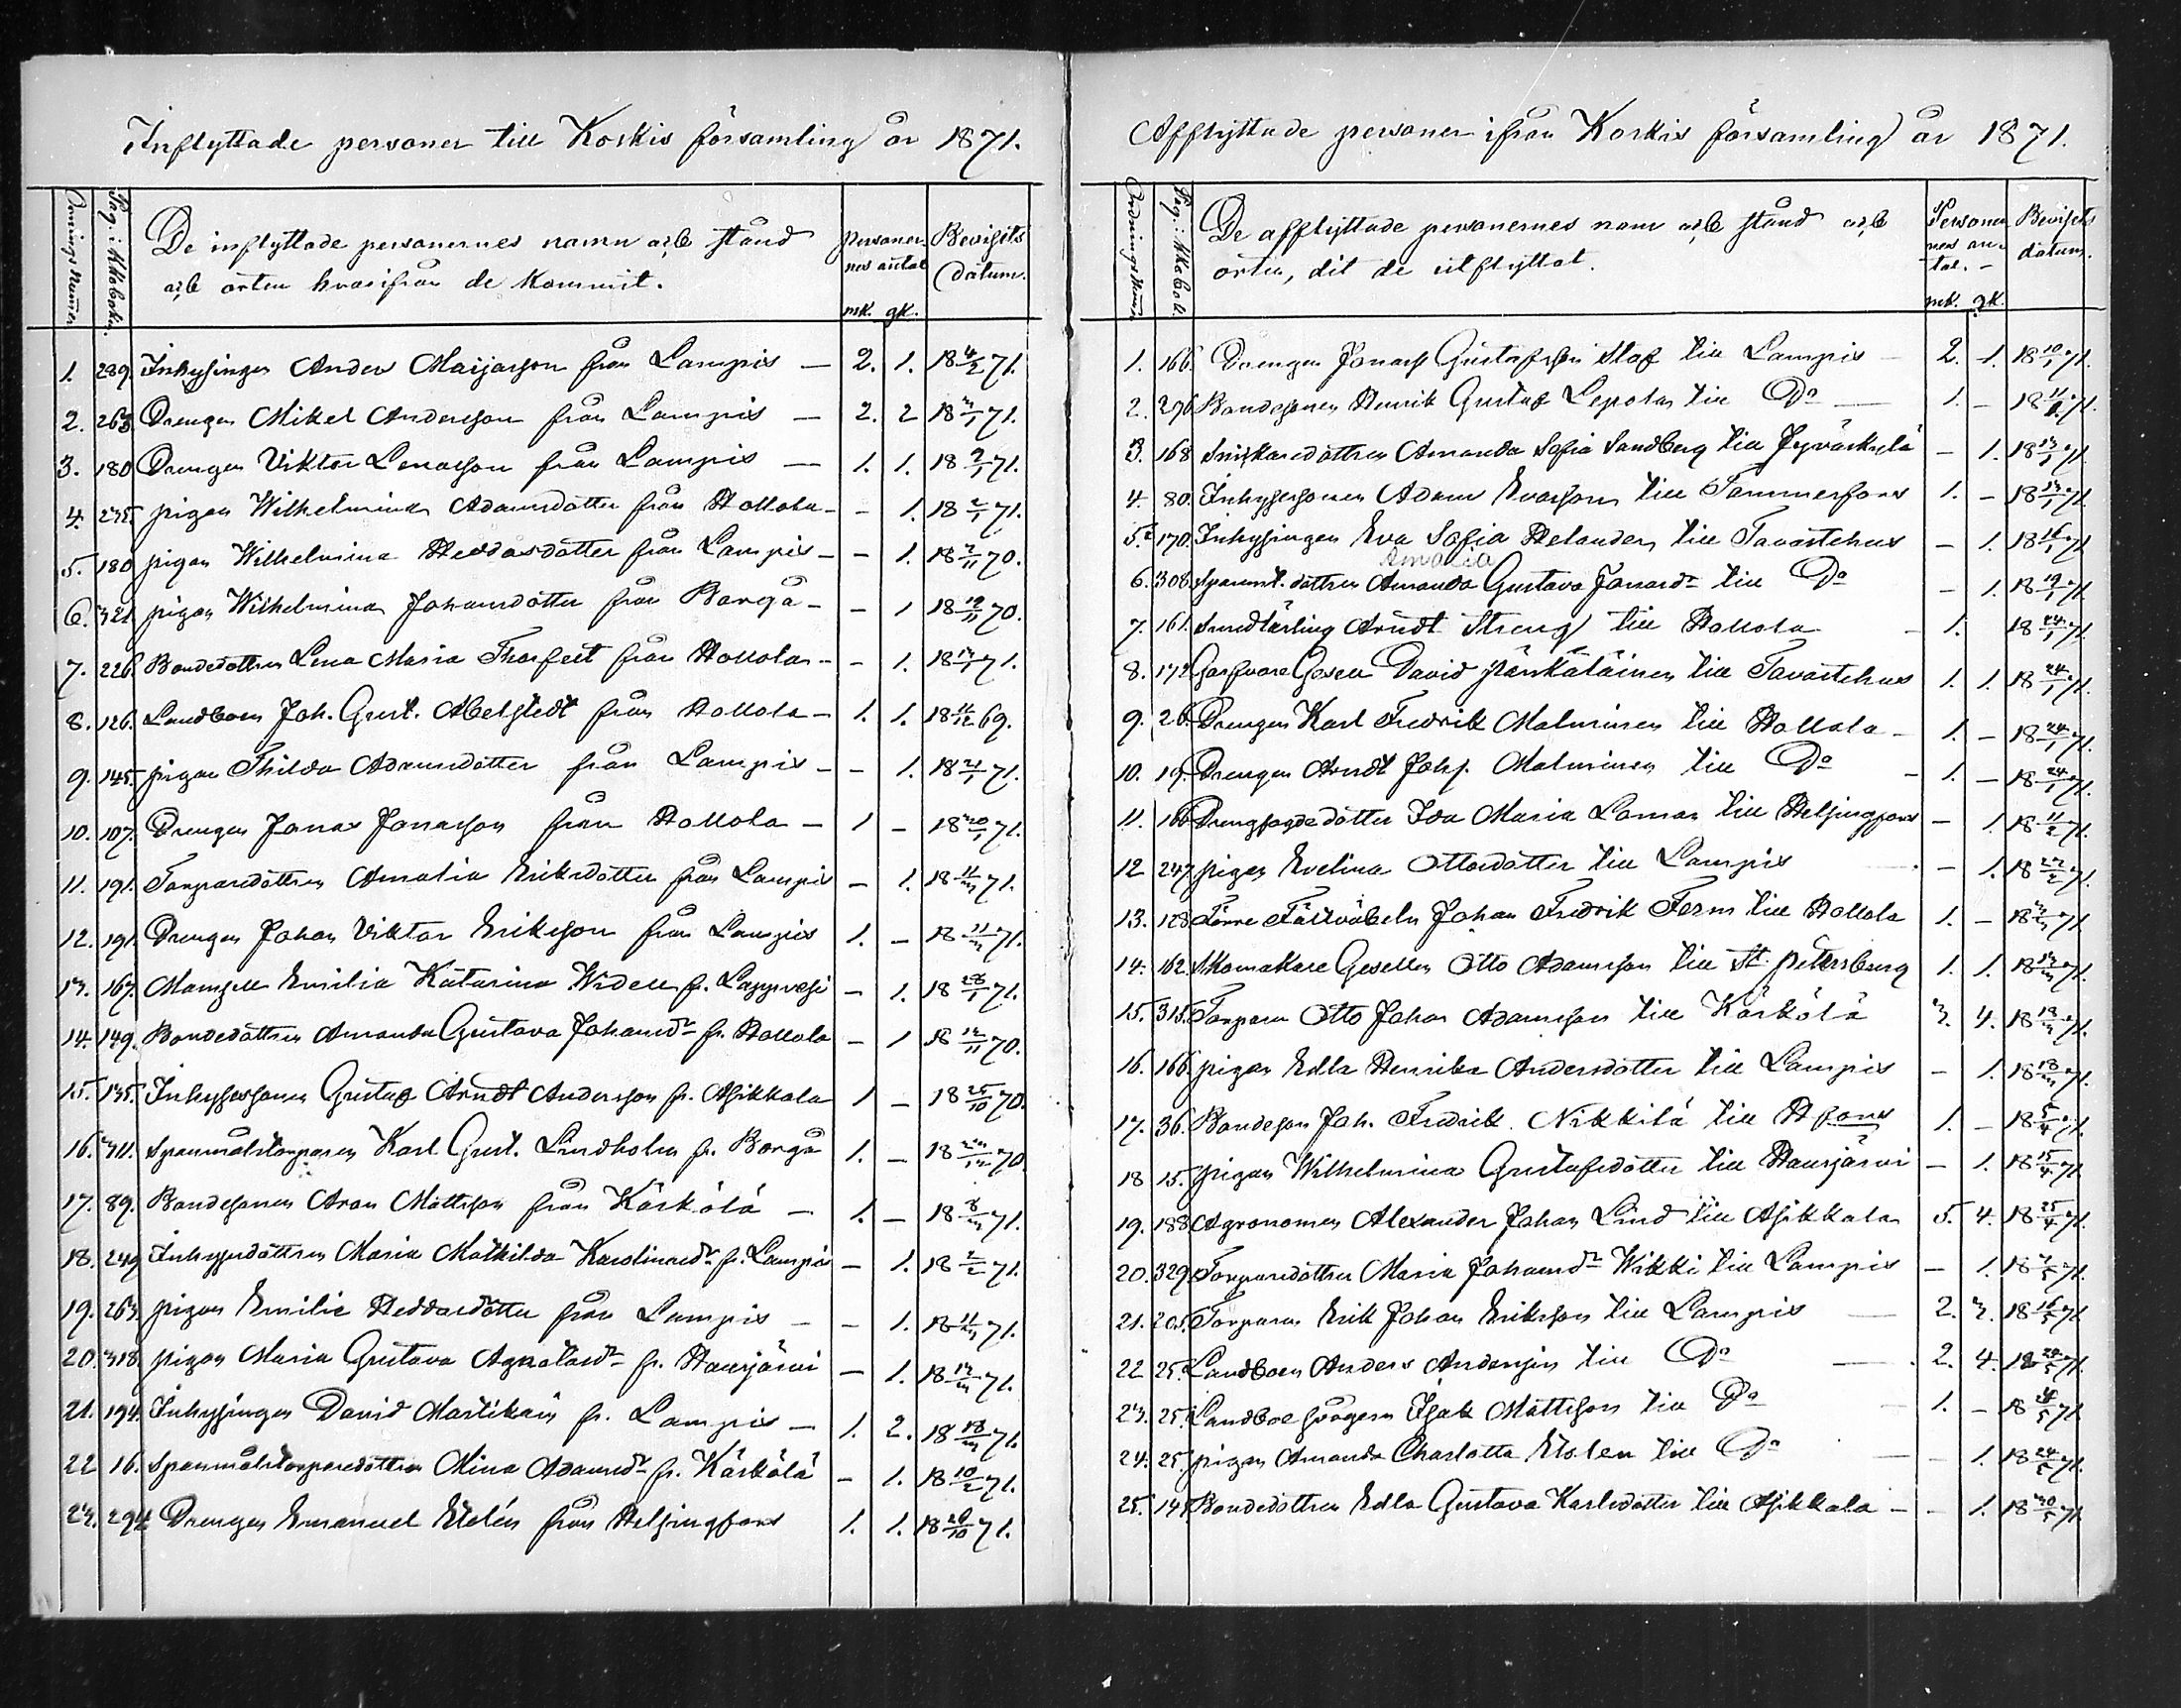 Inflyttade personer till Koskis församling år 1871.
Ordnings Numer
Pag. i Kkoboken.
De inflyttade personernes namn och stånd
och orten hvarifrån de kommit.
personer-
nes antal
mk. qk.
Bevisets
datum.
1. 289. Inhysingen Anders Maijasson från Lampis — 2. 1. 18 4/2 71.
2. 263. Drengen Mikel Andersson från Lampis — 2. 2 18 3/1 71.
3. 180 Drengen Viktor Lenasson från Lampis — 1. 1. 18 2/1 71.
4. 235. pigan Wilhelmina Adamsdotter från Hollola - - 1. 18 2/1 71.
5. 180 pigan Wilhelmina Heddasdotter från Lampis - - 1. 18 7/11 70.
6. 321. pigan Wilhelmina Johansdotter från Borgå - - 1 18 19/11 70.
7. 226. Bondedottren Lena Maria Thorfelt från Hollola - - 1. 18 13/1 71.
8. 126. Landboen Joh. Gust. Abelstedt från Hollola - 1. 1. 18 11/12 69.
9. 145. pigan Thilda Adamsdotter från Lampis - - 1. 18 21/1 71.
10. 107. Drengen Jonas Jonasson från Hollola - 1 - 18 30/1 71.
11. 191. Torparedottren Amalia Eriksdotter från Lampis - 1. 18 11/3 71.
12. 191. Drengen Johan Viktor Eriksson från Lampis 1. - 18 11/3 71.
13. 167. Mamsell Emilia Katarina Widell fr. Lappvesi - 1. 18 28/1 71.
14. 149. Bondedottren Amanda Gustava Johansdr fr. Hollola - 1 18 12/11 70.
15. 135. Inhysessonen Gustaf Arndt Andersson fr. Asikkala 1 - 18 25/10 70.
16. 311. Spanmålstorparen Karl Gust. Lindholm fr. Borgå 1. - 18 23/12 70.
17. 89. Bondesonen Aron Mattsson från Kärkölä - 1. - 18 8/3 71.
18. 249 Inhysesdottren Maria Mathilda Karolinasdr fr. Lampis - 1. 18 2/2 71.
19. 263. pigan Emilie Heddasdotter från Lampis - - 1. 18 11/3 71.
20. 318. pigan Maria Gustava Agatasdr fr. Hausjärvi - 1. 18 12/3 71.
21. 194. Inhysingen David Martikain fr. Lampis - 1. 2. 18 18/3 71.
22 16. Spanmålstorparedottren Mina Adamsdr fr. Kärkölä - 1. 18 10/2 71.
23. 294. Drengen Emanuel Etolén från Helsingfors 1. 1. 18 26/10 71.
Afflyttade personer ifrån Koskis församling år 1871.
Ordnings Numer
Pag. i Kkobok.
De afflyttade personernes nam och stånd och
orten, dit de utflyttat.
Personer-
nes an-
tal. -
mk. qk.
Bevisets
datum.
1. 166. Drengen Jonas Gustafsson Staf till Lampis - 2. 1. 18 10/1 71.
2. 276 Bondesonen Henrik Gustaf Lepola till Do — 1. - 18 11/1 71.
3. 168 Snikaredottren Amanda Sofia Sandberg till Jyväskylä - 1. 18 13/1 71.
4. 80. Inhysesonen Adam Evasson till Tammerfors 1. - 18 13/1 71.
5. 170. Inhysingen Eva Sofia Helander till Tavastehus - 1. 18 16/1 71
Amalia
6. 308. Spanmt. dottren Amanda Gustava Jonasdr till Do - 1. 18 19/1 71.
7. 161. Smedlärling Arndt Streng till Hollola - 1. 18 24/1 71.
8. 172 Garfvare Gesell David pänkäläinen till Tavastehus 1. 1. 18 24/1 71.
9. 26. Drengen Karl Fredrik Malminen till Hollola - 1. - 18 24/1 71.
10. 19. Drengen Arndt Johs. Malminen till Do - 1. - 18 24/1 71.
11. 166 Drengfogdedotter Ida Maria Loman till Helsingfors - 1. 18 11/2 71.
12 247 pigan Evelina Ottosdotter till Lampis - 1. 18 22/2 71.
13. 128 Förre Fältväbeln Johan Fredrik Ferm till Hollola 1. - 18 3/3 71.
14. 162. Skomakare Gesellen Otto Adamsson till St. petersburg 1. 1. 18 13/3 71.
15. 315. Torparen Otto Johan Adamsson till Kärkölä 3. 4. 18 18/3 71.
16. 166. pigan Edla Henrika Andersdotter till Lampis - 1. 18 18/3 71.
17. 36. Bondeson Joh. Fredrik Nikkilä till Hfors 1. - 18 5/4 71.
18 15. pigan Wilhelmina Gustafsdotter till Hausjärvi - 1. 18 15/4 71.
19. 188. Agronomen Alexander Johan Lind till Asikkala 5. 4. 18 25/4 71.
20. 329. Torparedottren Maria Johansdr Wikki till Lampis - 1. 18 7/5 71.
21. 205. Torparen Erik Johan Eriksson till Lampis — 2. 3. 18 16/5 71.
22 25. Landboen Anders Andersin till Do — 2. 4. 18 24/5 71.
23. 25. Landboesvågern Isak Mattsson till Do - 1. - 18 4/5 71.
24. 25. pigan Amanda Charlotta Etolen till Do — - 1. 18 24/5 71.
25. 147. Bondedottren Edla Gustava Karlsdotter till Asikkala - - 1. 18 30/5 71.